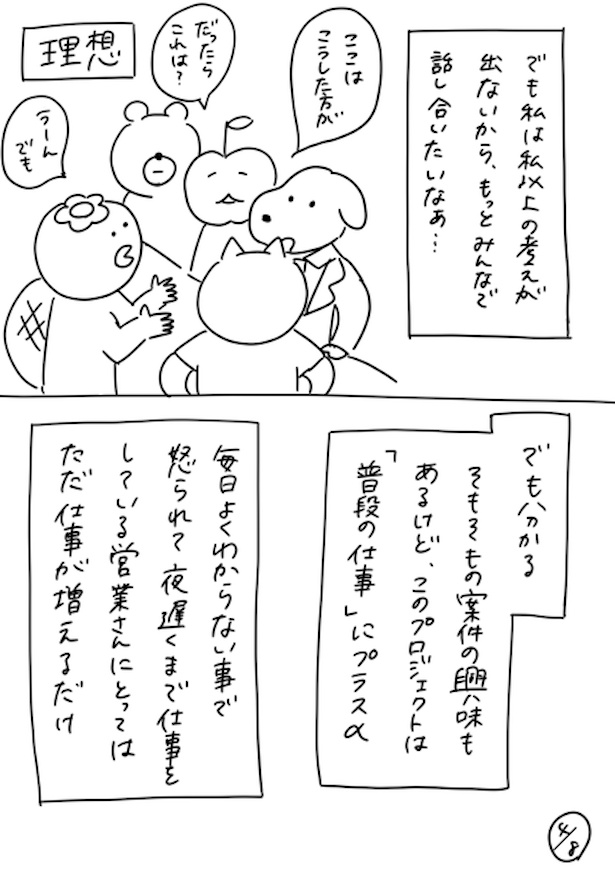 でも私は私以上の考えが
出ないから、もっとみんなで
話し合いたいなあ…
理想
ここは
こうした方が
だったら
これは?
うーん
でも
でも分かる
そもそもの案件の興味も
あるけど、このプロジェクトは
「普段の仕事」にプラスα
毎日よくわからない事で
怒られて夜遅くまで仕事を
している営業さんにとっては
ただ仕事が増えるだけ
4/8